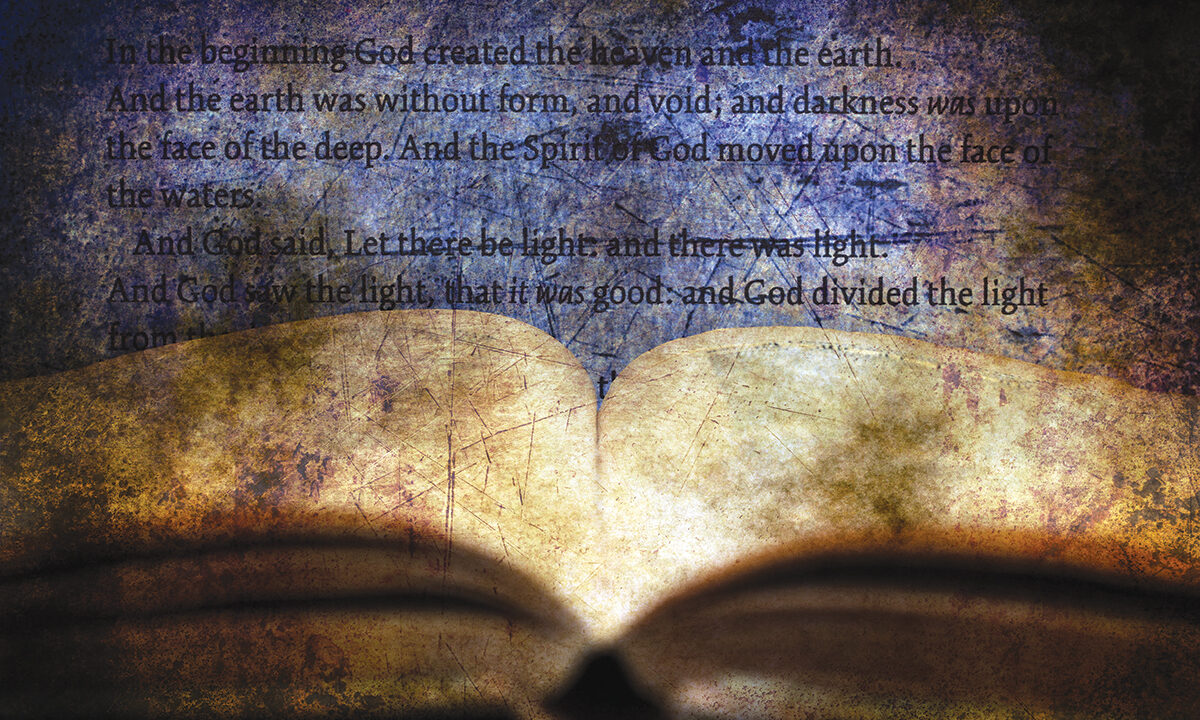 In the beginning God created the heaven and the earth.
And the earth was without form, and void; and darkness was upon
the face of the deep. And the Spirit of God moved upon the face of
the waters.
And God said, Let there be light: and there was light.
And God saw the light, that it was good: and God divided the light
from the